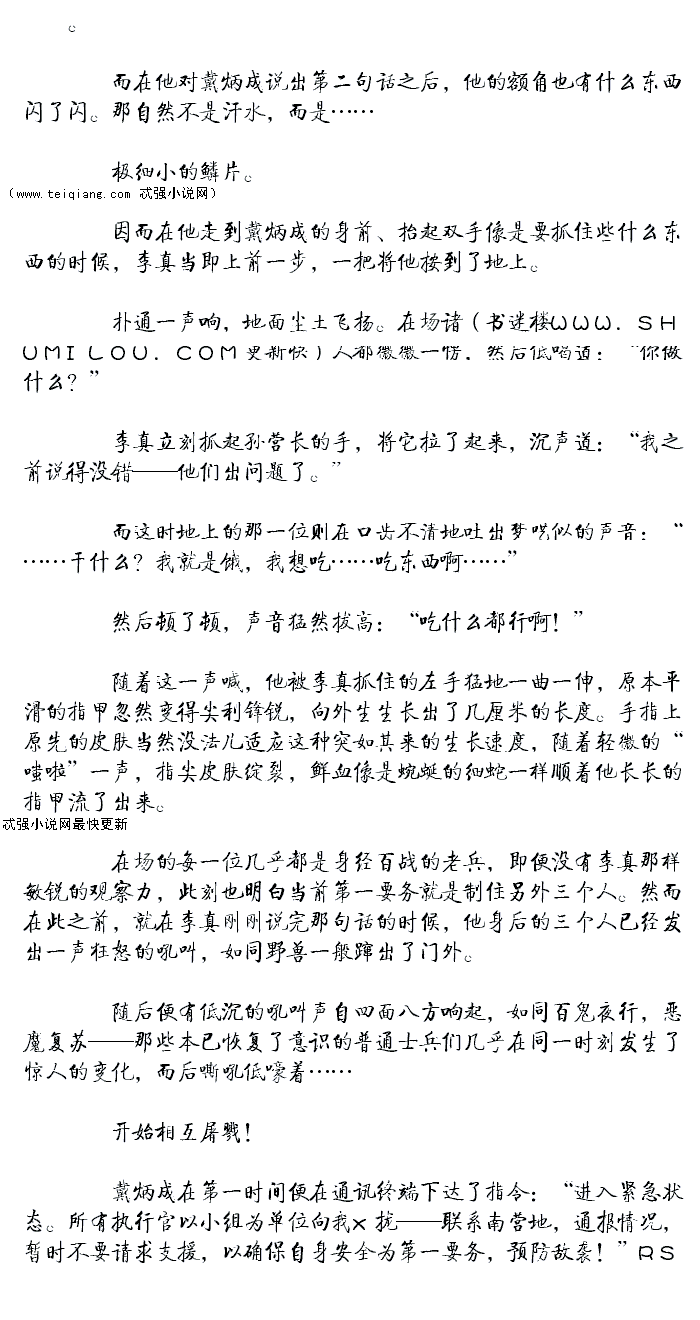 。
而在他对戴炳成说出第二句话之后，他的额角也有什么东西
闪了闪。那自然不是汗水，而是……
极细小的鳞片。
（www.teiqiang.com 忒强小说网）
因而在他走到戴炳成的身前、抬起双手像是要抓住些什么东
西的时候，李真当即上前一步，一把将他按到了地上。
扑通一声响，地面尘土飞扬。在场诸（书迷楼WWW.SH
UMILOU.COM更新快）人都微微一愣，然后低喝道：“你做
什么？”
李真立刻抓起孙营长的手，将它拉了起来，沉声道：“我之
前说得没错——他们出问题了。”
而这时地上的那一位则在口齿不清地吐出梦呓似的声音：“
……干什么？我就是饿，我想吃……吃东西啊……”
然后顿了顿，声音猛然拔高：“吃什么都行啊！”
随着这一声喊，他被李真抓住的左手猛地一曲一伸，原本平
滑的指甲忽然变得尖利锋锐，向外生生长出了几厘米的长度。手指上
原先的皮肤当然没法儿适应这种突如其来的生长速度，随着轻微的“
嗤啦”一声，指尖皮肤绽裂，鲜血像是蜿蜒的细蛇一样顺着他长长的
指甲流了出来。
忒强小说网最快更新
在场的每一位几乎都是身经百战的老兵，即便没有李真那样
敏锐的观察力，此刻也明白当前第一要务就是制住另外三个人。然而
在此之前，就在李真刚刚说完那句话的时候，他身后的三个人已经发
出一声狂怒的吼叫，如同野兽一般蹿出了门外。
随后便有低沉的吼叫声自四面八方响起，如同百鬼夜行，恶
魔复苏——那些本已恢复了意识的普通士兵们几乎在同一时刻发生了
惊人的变化，而后嘶吼低嚎着……
开始相互屠戮！
戴炳成在第一时间便在通讯终端下达了指令：“进入紧急状
态。所有执行官以小组为单位向我x拢——联系南营地，通报情况，
暂时不要请求支援，以确保自身安全为第一要务，预防敌袭！”RS